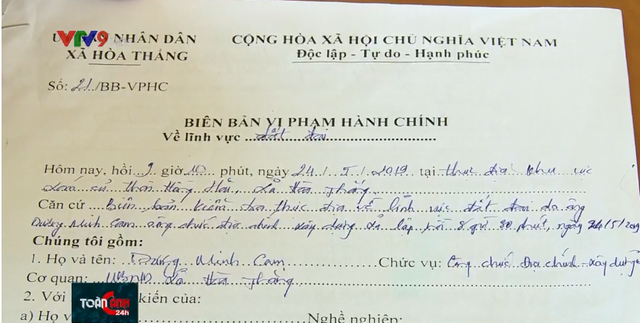 VTV9
NHÂN DÂN
XÃ HÒA THẮNG
CỘNG HÒA XÃ HỘI CHỦ NGHĨA VIỆT NAM
Độc lập - Tự do - Hạnh phúc
Số: 21./BB-VPHC
BIÊN BẢN VI PHẠM HÀNH CHÍNH
Về lĩnh vực đất đai
Hôm nay, hồi 9 giờ 10 phút, ngày 24/5/2019 tại thực địa khu vực
xã Hòa Thắng
Căn cứ Biên bản kiểm tra thực địa về lĩnh vực đất đai do ông
Dương Minh Cam công chức địa chính xây dựng xã lập hồi 8 giờ 30 phút, ngày 24/5/2019
Chúng tôi gồm:
1. Họ và tên: Dương Minh Cam Chức vụ: Công chức Địa chính - xây dựng
Cơ quan: UBND xã Hòa Thắng
2. Với kiến của:
a) Họ v Nghề nghiệp:
TOÀN CẢNH
24h